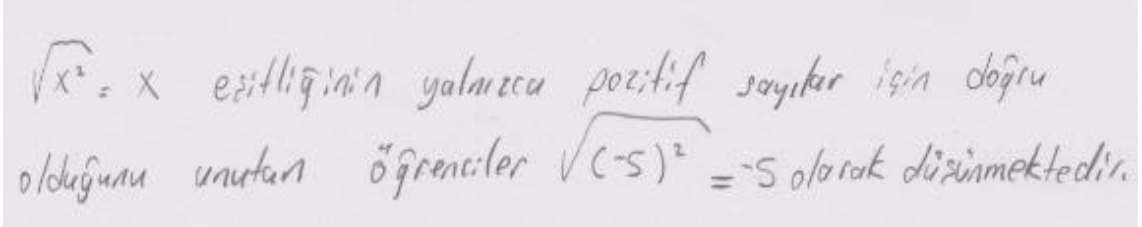 √x² = x eşitliğinin yalnızca pozitif sayılar için doğru
olduğunu unutan öğrenciler √(-5)² = -5 olarak düşünmektedir.